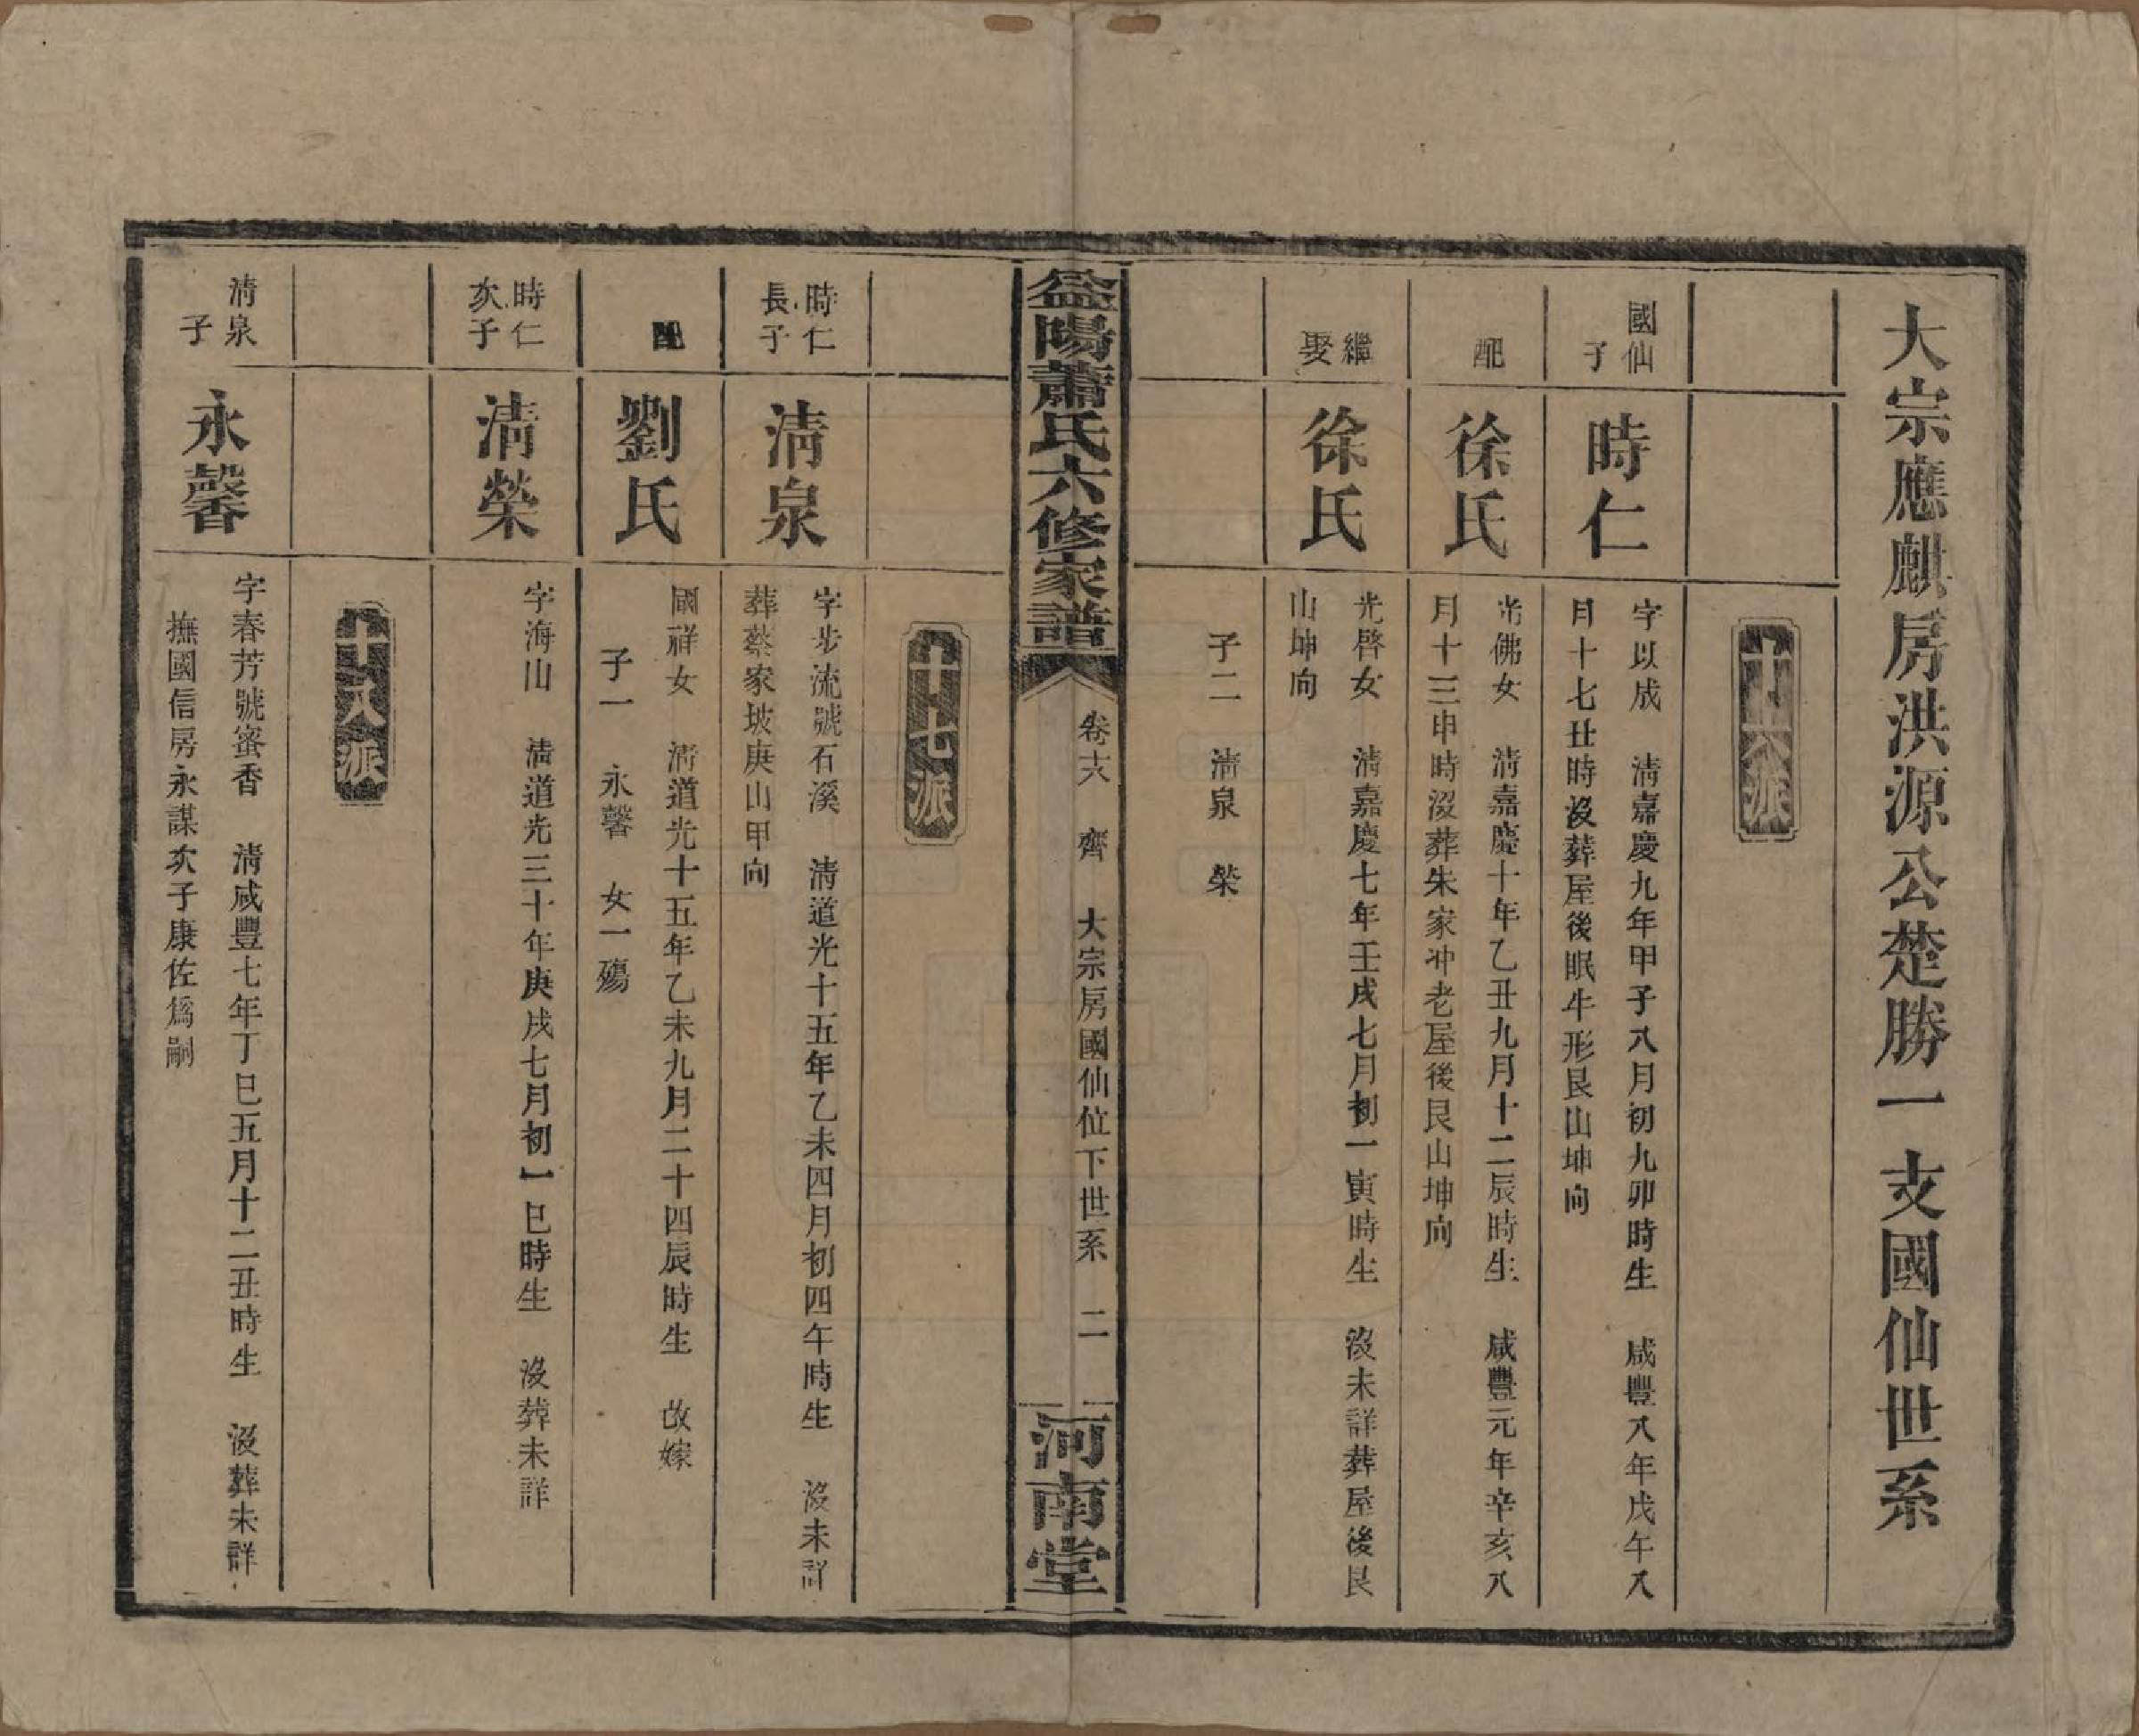 大宗應麒房洪源公楚勝一支國仙世系
十六派
國仙子
時仁
字以成 清嘉慶九年甲子八月初九卯時生 咸豐八年戊午八
月十七丑時沒葬屋後眠牛形艮山坤向
配
徐氏
光佛女 清嘉慶十年乙丑九月十二辰時生 咸豐元年辛亥八
月十三申時沒葬朱家冲老屋後艮山坤向
繼娶
徐氏
光啓女 清嘉慶七年壬戌七月初一寅時生 沒未詳葬屋後艮
山坤向
子二 清泉 榮
益陽蕭氏六修家譜
卷十六 齊 大宗房國仙位下世系 二
河南堂
十七派
時仁長子
清泉
字步流號石溪 清道光十五年乙未四月初四午時生 沒未詳
葬蔡家坡庚山甲向
配
劉氏
國祥女 清道光十五年乙未九月二十四辰時生 改嫁
子一 永馨 女一殤
時仁次子
清榮
字海山 清道光三十年庚戌七月初一巳時生 沒葬未詳
十八派
清泉子
永馨
字春芳號蜜香 清咸豐七年丁巳五月十二丑時生 沒葬未詳
撫國信房永謀次子康佐爲嗣